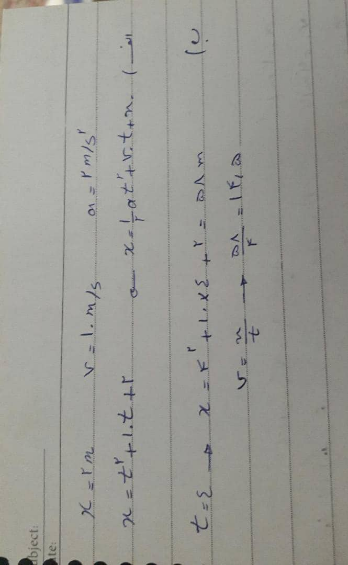 ubject:
te:
x = ۲m v = ۱۰ m/s a = ۲ m/s²
x = t² + ۱۰t + ۲ ← x = ½ at² + v.t + x. (الف
t = ٤ → x = ۴² + ۱۰×٤ + ۲ = ۵۸ m (ب
v = x/t → ۵۸/۴ = ۱۴,۵